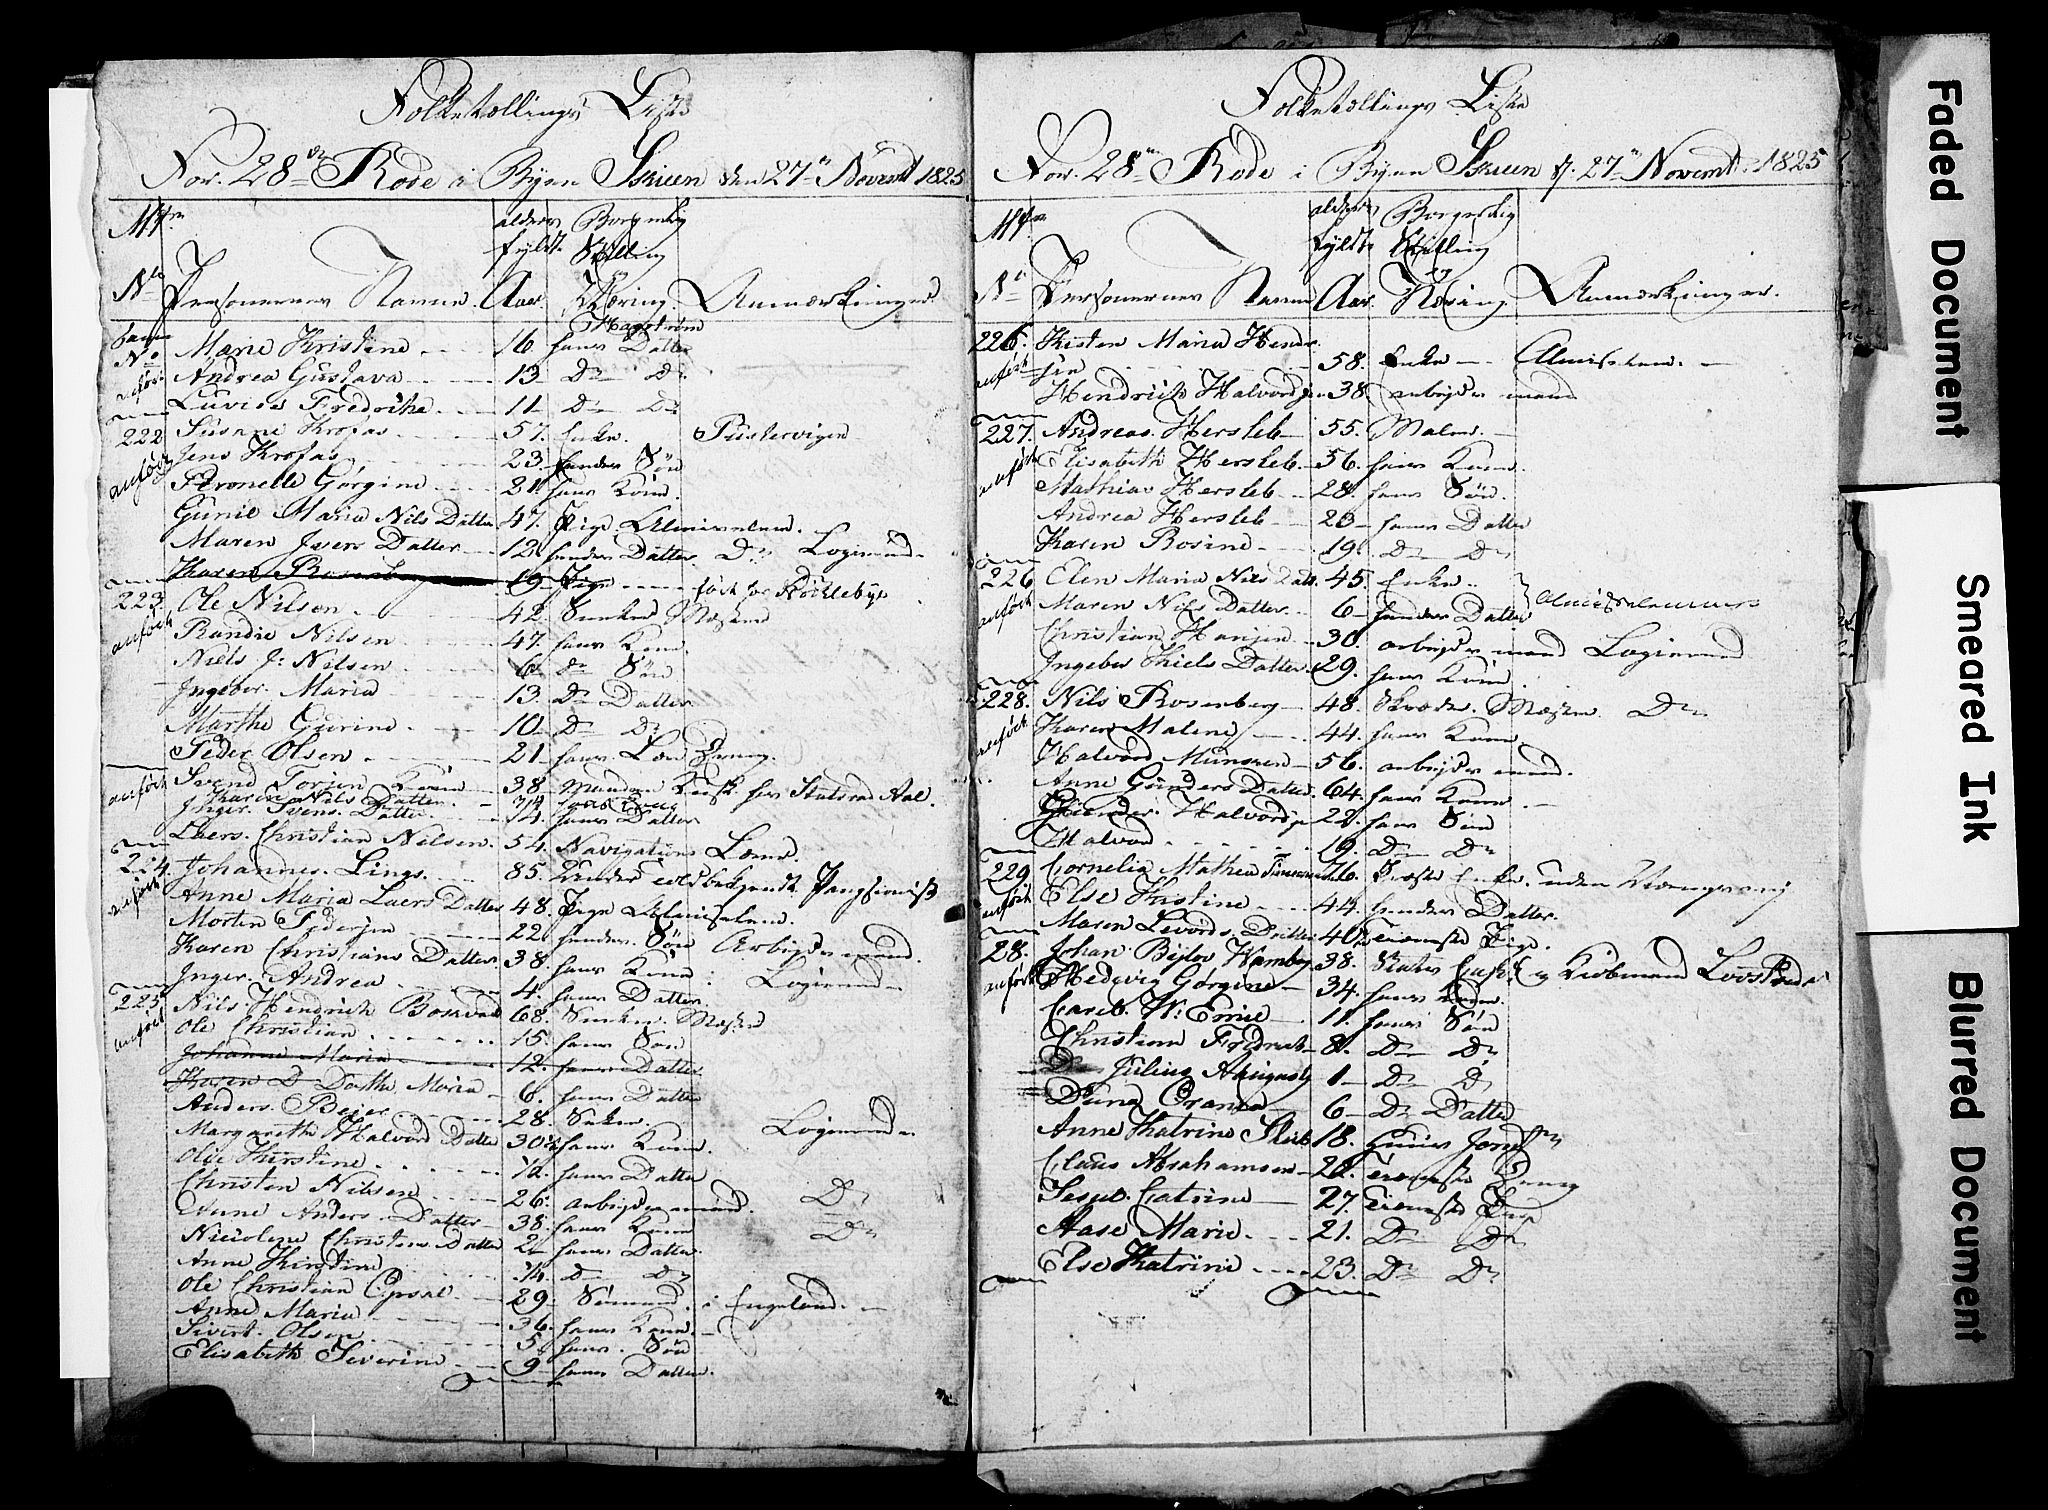 Folketællings Liste
For 28de Rode i Byen Skien den 27n Novembr 1825
Matr No
Personernes Navne.
alders fyldte Aar.
Borgerlig Stilling Næring.
Anmærkninger.
samme No anført
Hagstrøm
Marie Kristine 16 hans Datter
Andrea Gustava 13 Do Do
Luvise Fredrika 11 Do Do
222 anført
Susane Krofas 57. Enke. Pustervigen
Jens Krofas 23. hendes Søn
Petronelle Gørgine 21. hans Kone.
Gunil Maria Nils Datter 47. Pige. Almisselem.
Maren Ivers Datter 12. hendes Datter. Do Logerende
Karen Rosenberg 19 Pige ført for
223. anført
Ole Nilsen 42. Snekker Mæster
Randie Nilsen 47. hans Kone
Niels J: Nilsen 6. do Søn
Ingebor. Maria 13. Do Datter
Marthe Gurine 10. Do Do
Peder Olsen 21. hans Lære Dreng.
anført
Svend Torjen 38 Manden Kusk hos Statsraad Aal.
Karen Nils Datter. 34 hans Kone
Inger. Svens. Datter. 14. hans Datter
Laers. Christian Nilsen. 54. Navigations Lærer.
224. anført
Johannes. Lings. 85. Pangsionist
Anne Maria Laers Datter 48. Pige Almisselem.
Morten Pedersen 22. hendes. Søn Arbeyds mand.
Karen Christians Datter. 38. hans Kone
Inger. Andrea 4. hans Datter. Logerende
225 anført
Nils Hendrich 68. Snekker. Mæster
Ole Christian 15. hans Søn
Johanne Maria 12. hans Datter
Karen D Dorthe Maria 6. hans Datter
Anders. Beier 28. Snekker. Logerende
Margarethe Halvord Datter 30 hans Kone.
Olie Kirstine 1/2 hans Datter
Christen Nilssen 26. arbeyds mand. Do
Anne Anders. Datter 38. hans Kone Do
Nicoline Christens Datter 2 hans Datter.
Anne Kirstine 1/4. Do Do
Ole Christian 29. Sømand. i Engeland.
Anne Maria 36. hans Kone.
Sivert. Olsen 5. hans. Søn
Elisabeth Severine 9 hans Datter.
Folketællings Liste
For 28de Rode i Byen Skien d. 27n Novembr. 1825
Matr No
Personernes Navne
alders fyldte Aar.
Borgerlig Stilling og Næring.
Anmærkninger.
226. anført
Kisten Maria Hendrichsen 58. Enke Almisselem.
Hendrich Halvordsen 38. arbeyds mand
227. anført
Andreas. Hersleb 55. Maler.
Elisabeth Hersleb 56. hans Kone.
Mathias Hersleb 28. hans Søn.
Andrea Hersleb 23 hans Datter
Karen Rosine 19. Do Do
226 anført
Elen Maria Nils Datt. 45. Enke. Almisselemmer
Maren Nils Datter 6 hendes Datter
Christian Hansen 30. arbeyds mand Logerende
Ingebor Niels Datter 29. hans Kone.
228. anført
Nils Rosenberg 48. Skreder. Mæster Do
Karen Malene 44. hans Kone.
Halvord 56. arbeyds mand.
Anne Gunders Datter. 64. hans Kone.
Gunder. Halvordsen 22. hans Søn
Halvor 19. Do Do
229 anført
Cornelia Mathea 76. Enke. uden Næringsvej
Else Kistine 44. hendes Datter.
Maren Levords. Datter 40 Tieneste Pige.
28. anført
Johan 38. og Kiøbmand
Hedevig Gørgine 34. hans Kone.
Carel. W: Emil 11. hans Søn
Christian Fredrich 8. Do Do
Do Julius August 1 Do Do
6 Do Datter
Anne Katrine 18. Huus Jomfru
Claus Abrahamsen 20. Tieneste Dreng
Catrine 27. Tieneste Pige
Aase Marie. 21. Do Do
Else Katrine 23. Do Do
Faded Document
Smeared Ink
Blurred Document